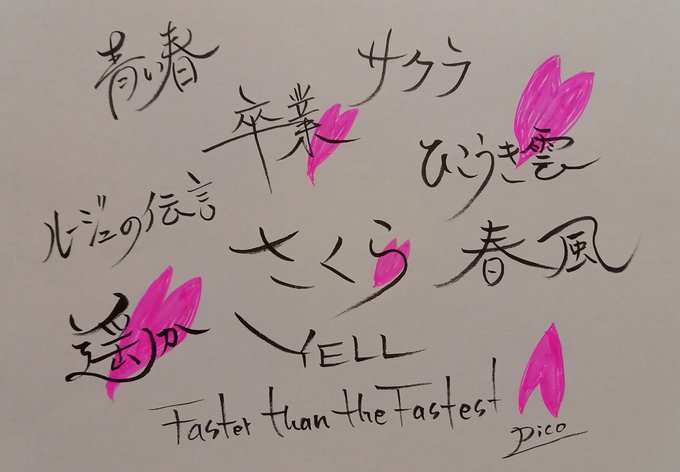 青い春
サクラ
卒業
ひこうき雲
ルージュの伝言
さくら
春風
遥か
YELL
Faster than the Fastest
pico